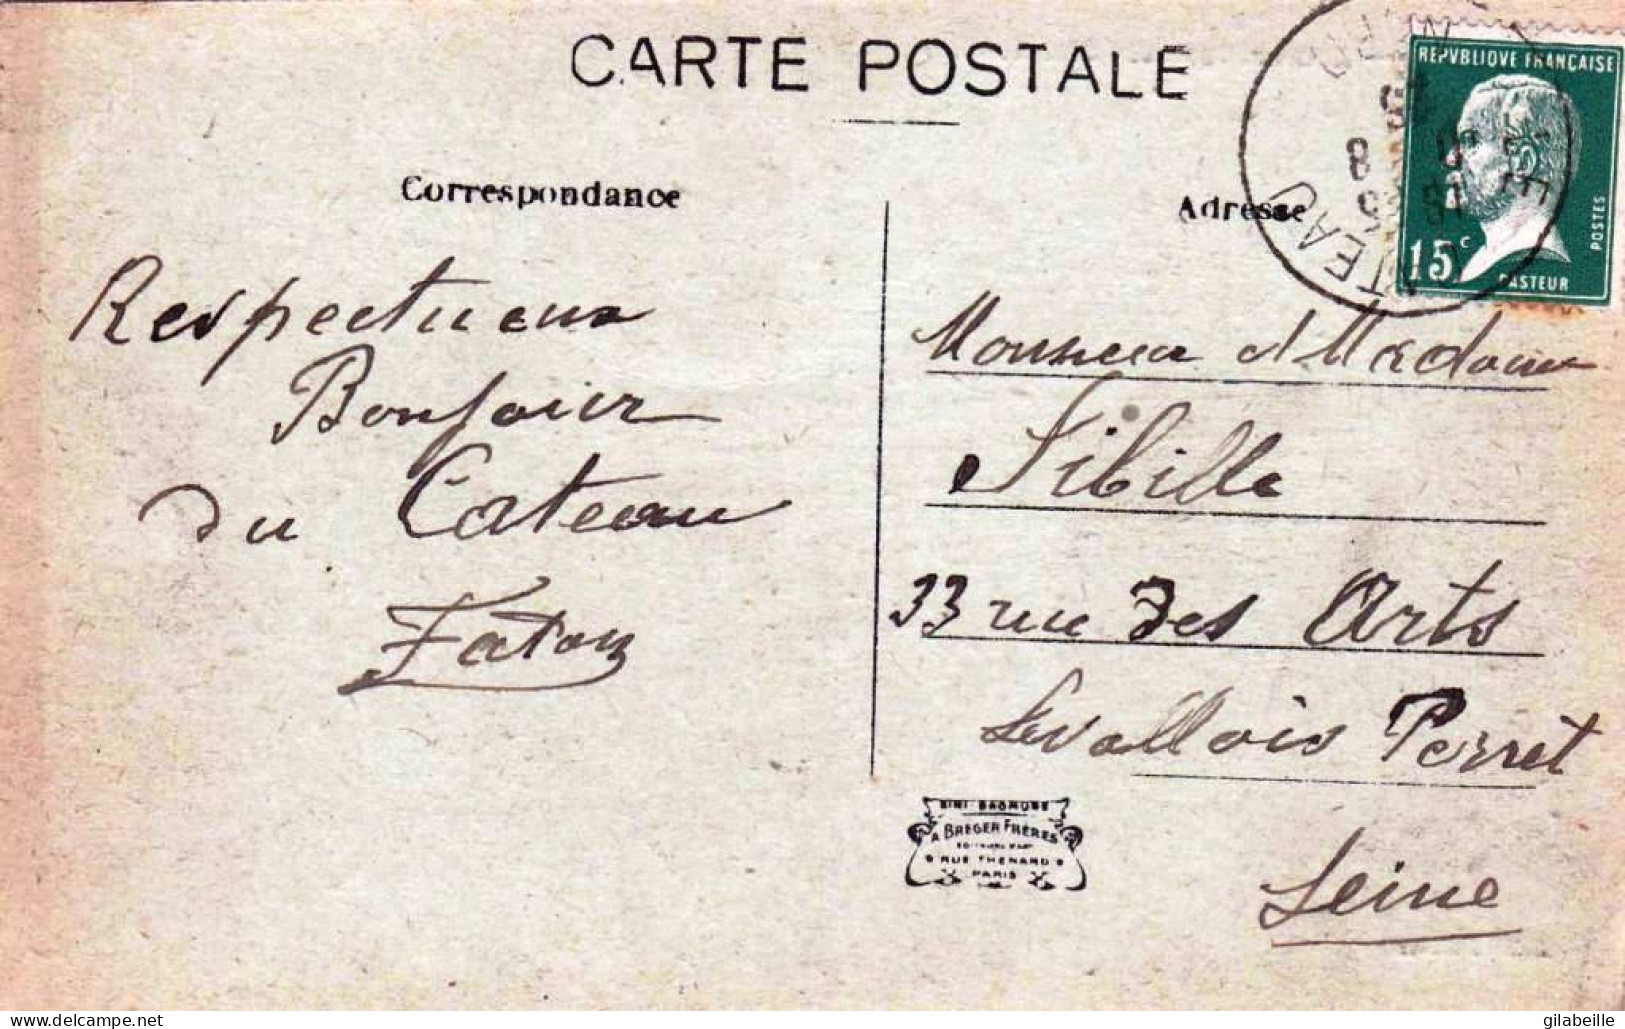 CARTE POSTALE
Correspondance
Respectueux
Bonjour
du Cateau
Faton
Adresse
REPVBLIQVE FRANÇAISE
POSTES
15c
PASTEUR
Monsieur et Madame
Sibille
33 rue des Arts
Levallois Perret
Seine
A BREGER FRÈRES
9 RUE THENARD 9
PARIS
delcampe.net
gilabeille